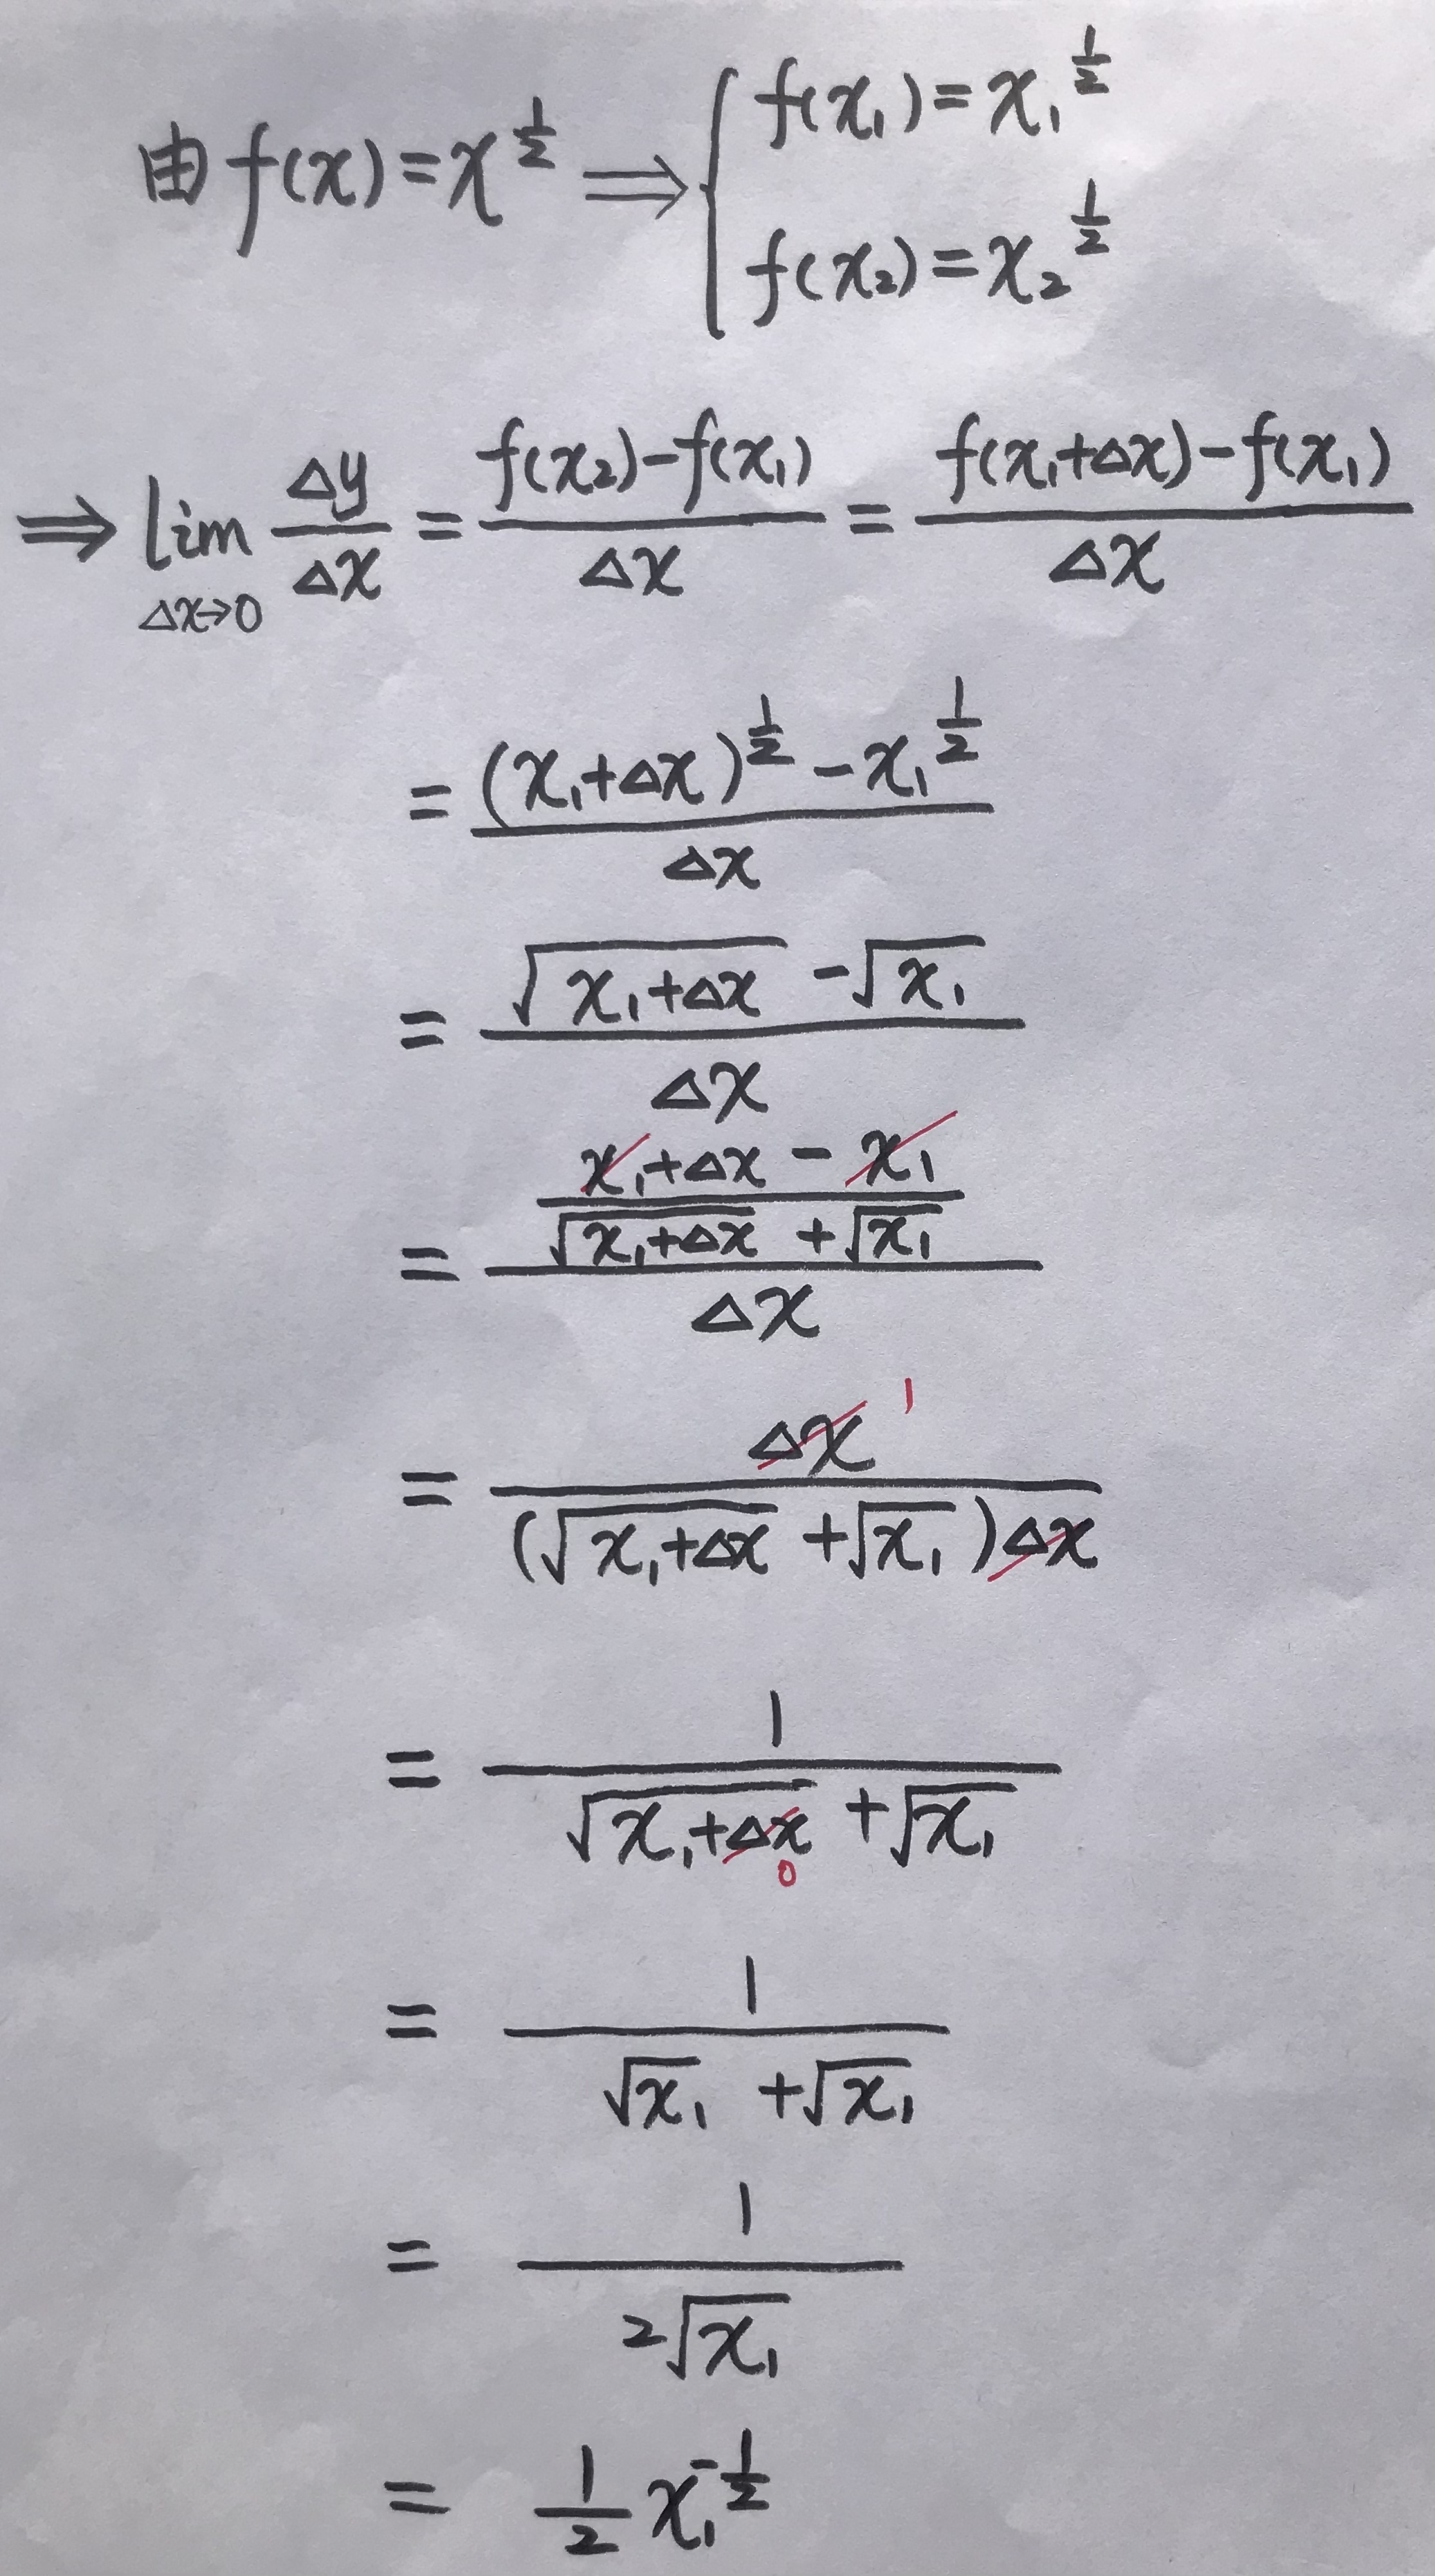 由 f(x)=x^{\frac{1}{2}} ⟹ \begin{cases} f(x₁)=x₁^{\frac{1}{2}} \\ f(x₂)=x₂^{\frac{1}{2}} \end{cases}
⟹ \lim_{Δx→0} \frac{Δy}{Δx} = \frac{f(x₂)-f(x₁)}{Δx} = \frac{f(x₁+Δx)-f(x₁)}{Δx}
= \frac{(x₁+Δx)^{\frac{1}{2}}-x₁^{\frac{1}{2}}}{Δx}
= \frac{\sqrt{x₁+Δx}-\sqrt{x₁}}{Δx}
= \frac{\frac{x₁+Δx-x₁}{\sqrt{x₁+Δx}+\sqrt{x₁}}}{Δx}
= \frac{Δx^{1}}{(\sqrt{x₁+Δx}+\sqrt{x₁})Δx}
= \frac{1}{\sqrt{x₁+Δx_{0}}+\sqrt{x₁}}
= \frac{1}{\sqrt{x₁}+\sqrt{x₁}}
= \frac{1}{2\sqrt{x₁}}
= \frac{1}{2}x₁^{-\frac{1}{2}}